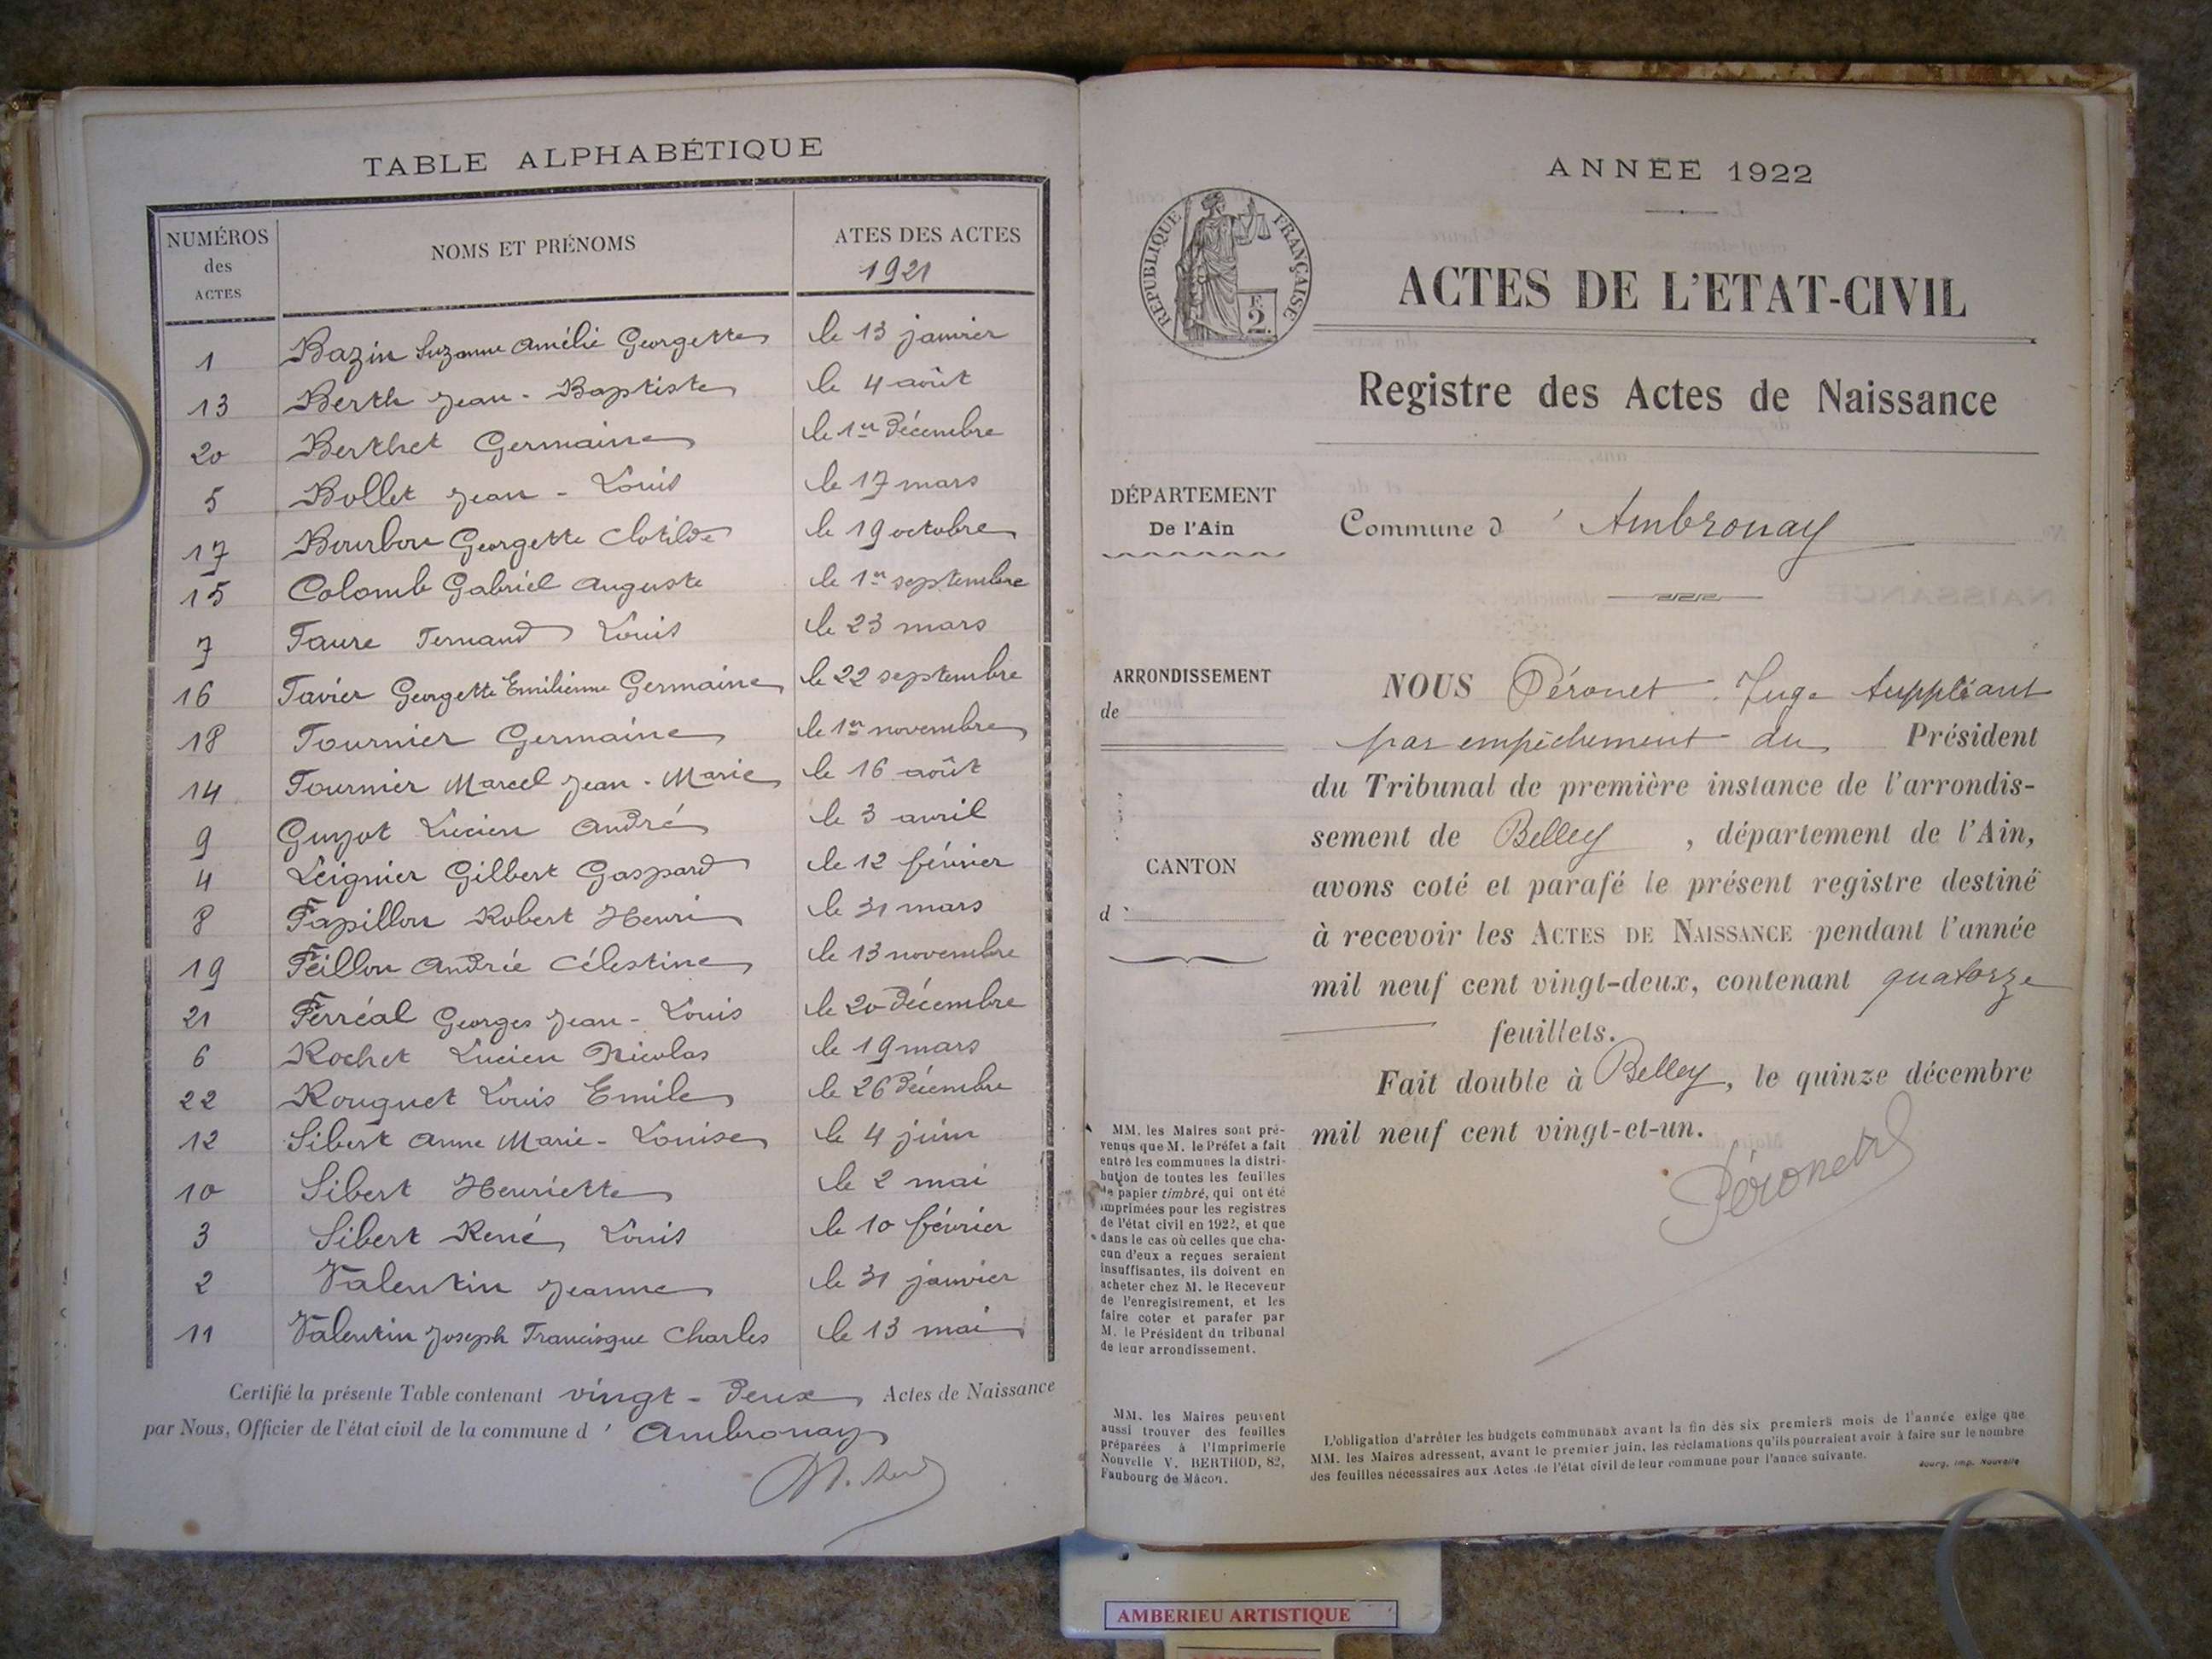 TABLE ALPHABÉTIQUE
NUMÉROS des ACTES NOMS ET PRÉNOMS ATES DES ACTES 1921
1 Bazin Suzanne Amélie Georgette le 13 janvier
13 Berth Jean-Baptiste le 4 août
20 Berthet Germaine le 1er Décembre
5 Bollet Jean-Louis le 17 mars
17 Bourbon Georgette Clotilde le 19 octobre
15 Colomb Gabriel Auguste le 1er septembre
7 Faure Fernand Louis le 23 mars
16 Favier Georgette Emilienne Germaine le 22 septembre
18 Fournier Germaine le 1er novembre
14 Fournier Marcel Jean-Marie le 16 août
9 Guyot Lucien André le 3 avril
4 Leignier Gilbert Gaspard le 12 février
8 Papillon Robert Henri le 31 mars
19 Peillon Andrée Célestine le 13 novembre
21 Perréal Georges Jean-Louis le 20 Décembre
6 Rochet Lucien Nicolas le 19 mars
22 Rouguet Louis Emile le 26 Décembre
12 Sibert Anne Marie-Louise le 4 juin
10 Sibert Henriette le 2 mai
3 Sibert René Louis le 10 février
2 Valentin Jeanne le 31 janvier
11 Valentin Joseph Francisque Charles le 13 mai
Certifié la présente Table contenant vingt-deux Actes de Naissance
par Nous, Officier de l'état civil de la commune d'Ambronay
ANNÉE 1922
RÉPUBLIQUE FRANÇAISE
2 F.
ACTES DE L'ETAT-CIVIL
Registre des Actes de Naissance
DÉPARTEMENT
De l'Ain
Commune d'Ambronay
ARRONDISSEMENT
de
CANTON
d
NOUS Péronet Juge Suppléant
par empêchement du Président
du Tribunal de première instance de l'arrondis-
sement de Belley, département de l'Ain,
avons coté et parafé le présent registre destiné
à recevoir les ACTES DE NAISSANCE pendant l'année
mil neuf cent vingt-deux, contenant quatorze
feuillets.
Fait double à Belley, le quinze décembre
mil neuf cent vingt-et-un.
Péronet
MM. les Maires sont pré-
venus que M. le Préfet a fait
entre les communes la distri-
bution de toutes les feuilles
de papier timbré, qui ont été
imprimées pour les registres
de l'état civil en 1922, et que
dans le cas où celles que cha-
cun d'eux a reçues seraient
insuffisantes, ils doivent en
acheter chez M. le Receveur
de l'enregistrement, et les
faire coter et parafer par
M. le Président du tribunal
de leur arrondissement.
MM. les Maires peuvent
aussi trouver des feuilles
préparées à l'Imprimerie
Nouvelle V. BERTHOD, 82,
Faubourg de Mâcon.
L'obligation d'arrêter les budgets communaux avant la fin des six premiers mois de l'année exige que
MM. les Maires adressent, avant le premier juin, les réclamations qu'ils pourraient avoir à faire sur le nombre
des feuilles nécessaires aux Actes de l'état civil de leur commune pour l'année suivante.
Bourg, Imp. Nouvelle
AMBERIEU ARTISTIQUE